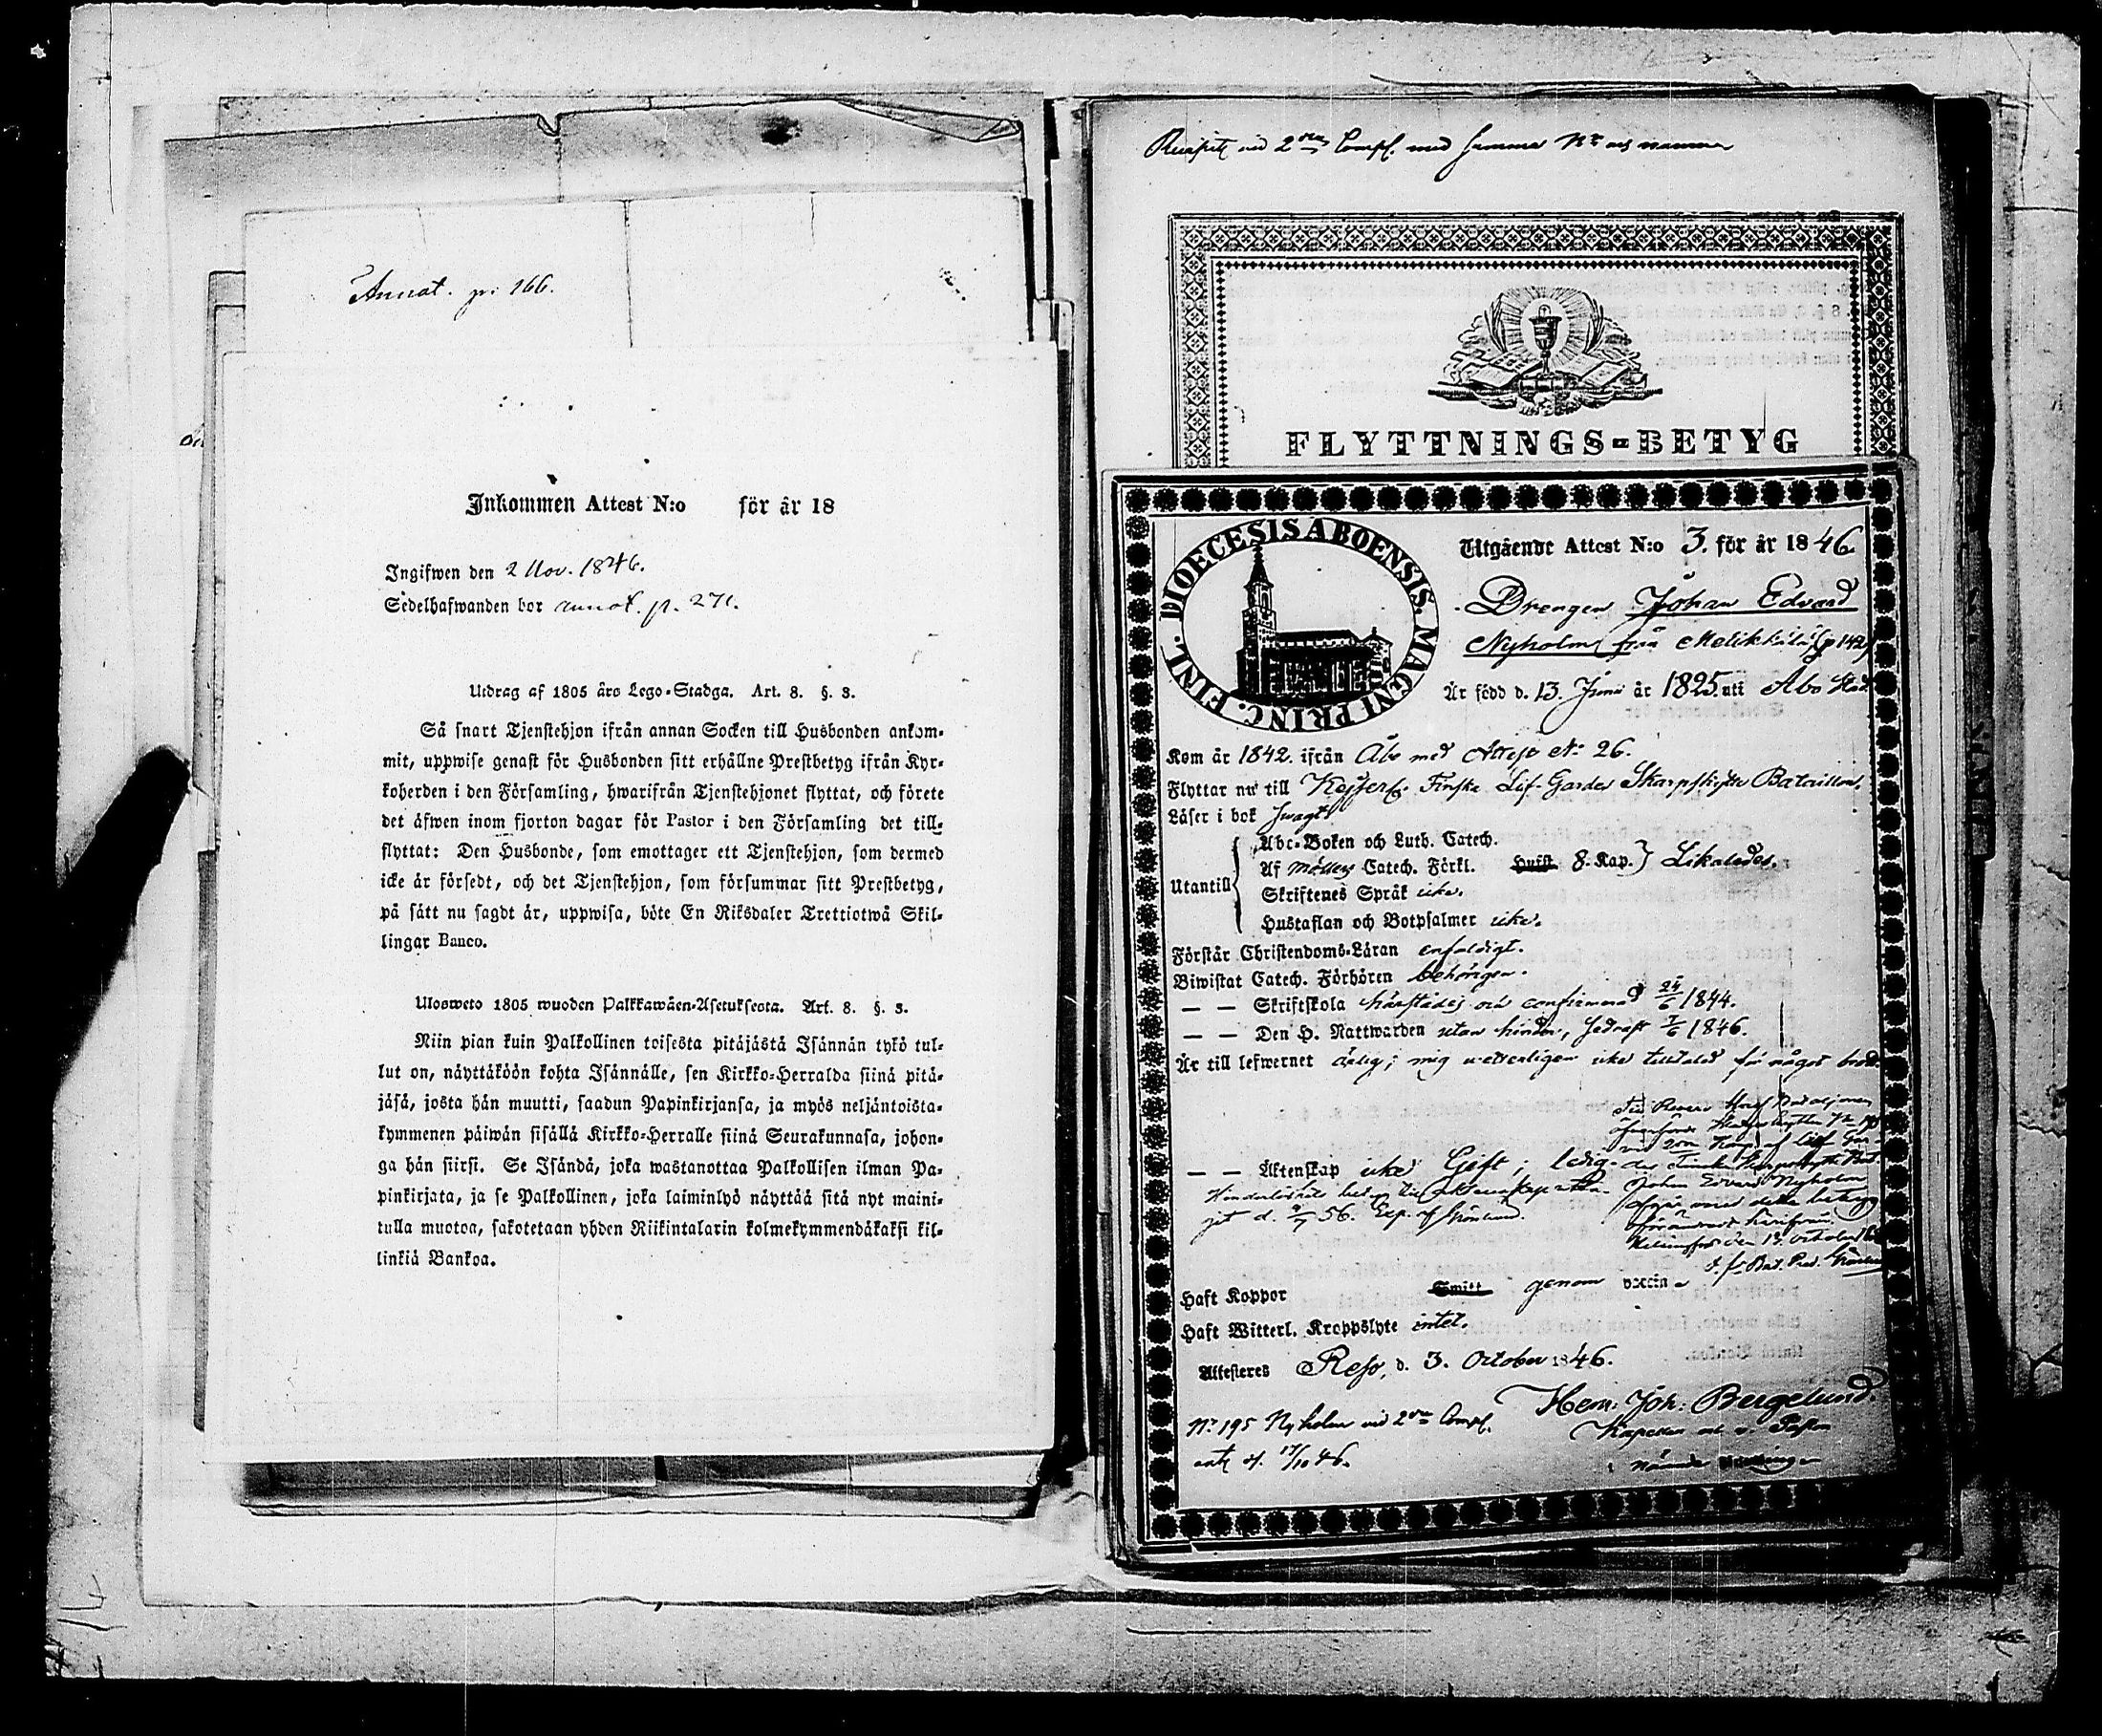 Annot. p. 166.
Inkommen Attest N:o för år 18
Ingifwen den 2 Nov. 1846.
Sedelhafwanden bor annot. p. 271.
Utdrag af 1805 års Lego-Stadga. Art. 8. §. 3.
Så snart Tjenstehjon ifrån annan Socken till Husbonden ankom-
mit, uppwise genast för Husbonden sitt erhållne Prestbetyg ifrån Kyr-
koherden i den Församling, hwarifrån Tjenstehjonet flyttat, och förete
det äfwen inom fjorton dagar för Pastor i den Församling det till-
flyttat: Den Husbonde, som emottager ett Tjenstehjon, som dermed
icke är försedt, och det Tjenstehjon, som försummar sitt Prestbetyg,
på sätt nu sagdt är, uppwisa, böte En Riksdaler Trettiotwå Skil-
lingar Banco.
Ulosweto 1805 wuoden Palkkawäen-Asetuksesta. Art. 8. §. 3.
Niin pian kuin Palkollinen toisesta pitäjästä Isännän tykö tul-
lut on, näyttäköön kohta Isännälle, sen Kirkko-Herralda siinä pitä-
jäsä, josta hän muutti, saadun Papinkirjansa, ja myös neljäntoista-
kymmenen päiwän sisällä Kirkko-Herralle siinä Seurakunnasa, johon-
ga hän siirsi. Se Isändä, joka wastanottaa Palkollisen ilman Pa-
pinkirjata, ja se Palkollinen, joka laiminlyö näyttää sitä nyt maini-
tulla muotoa, sakotetaan yhden Riikintalarin kolmekymmendäkaksi kil-
linkiä Bankoa.
vid 2dra Comp. med samma Nr och namn
FLYTTNINGS-BETYG
DIOECESIS ABOENSIS. MAGNI PRINC. FINL.
Utgående Attest N:o 3. för år 1846.
Drengen Johan Edvard
Nyholm från Melikkälä (p 142)
Är född d. 13. Junii år 1825. uti Åbo Stad.
Kom år 1842. ifrån Åbo med Attest No 26.
Flyttar nu till Kejserl. Finska Lif-Gardes Skarpskytte Bataillon.
Läser i bok svagt
Utantill
Abc-Boken och Luth. Catech.
Af Möllers Catech. Förkl. Hufst. 8. Kap. } Likaledes.
Skriftenes Språk icke.
Hustaflan och Botpsalmer icke.
Förstår Christendoms-Läran enfaldigt.
Biwistat Catech. Förhören behörigen.
— — Skriftskola härstädes och confirmerad 24/6 1844.
— — Den H. Nattwarden utan hinder, sednast 7/6 1846.
Är till lefwernet ärlig; mig wetterligen icke tilltalad för något brott.
— — Äktenskap icke Gift; ledig.
Johan Edvard Nyholm
Haft Koppor Smitt genom vaccin
Haft Witterl. Kroppslyte intet.
Attesteras Reso, d. 3. October 1846.
Hem: Joh: Bergelund.
Nr 195 Nyholm vid 2dra Comp.
17/10 46.